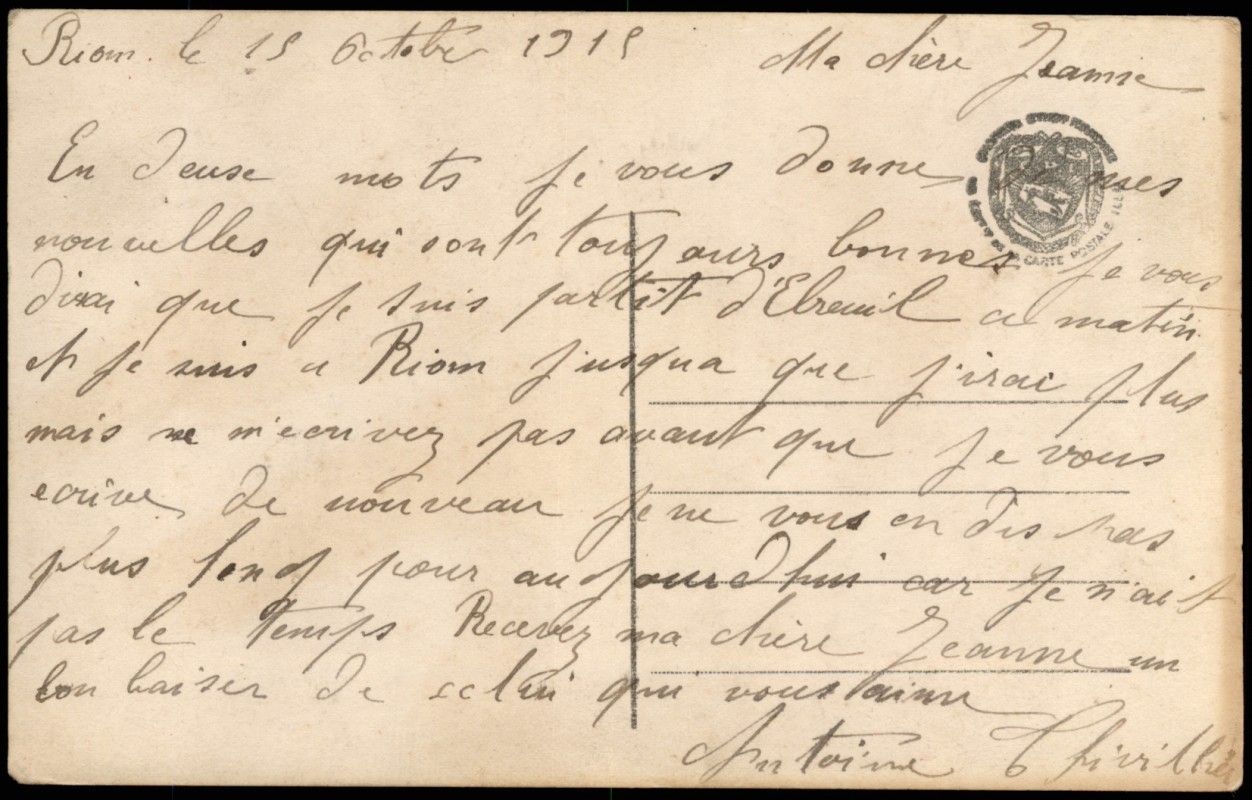 Riom. le 15 Octobre 1915 Ma chère Jeanne
En deuse mots je vous donne de mes
nouvelles qui sont toujours bonnes je vous
dirai que je suis partit d'Ebreuil ce matin
et je suis a Riom jusqua que j'irai plus
mais ne m'ecrivez pas avant que je vous
ecrive de nouveau je ne vous en dis pas
plus long pour aujourdhui car je n'ait
pas le temps Recevez ma chère Jeanne un
bon baiser de celui qui vous aime
Antoine
CARTE POSTALE